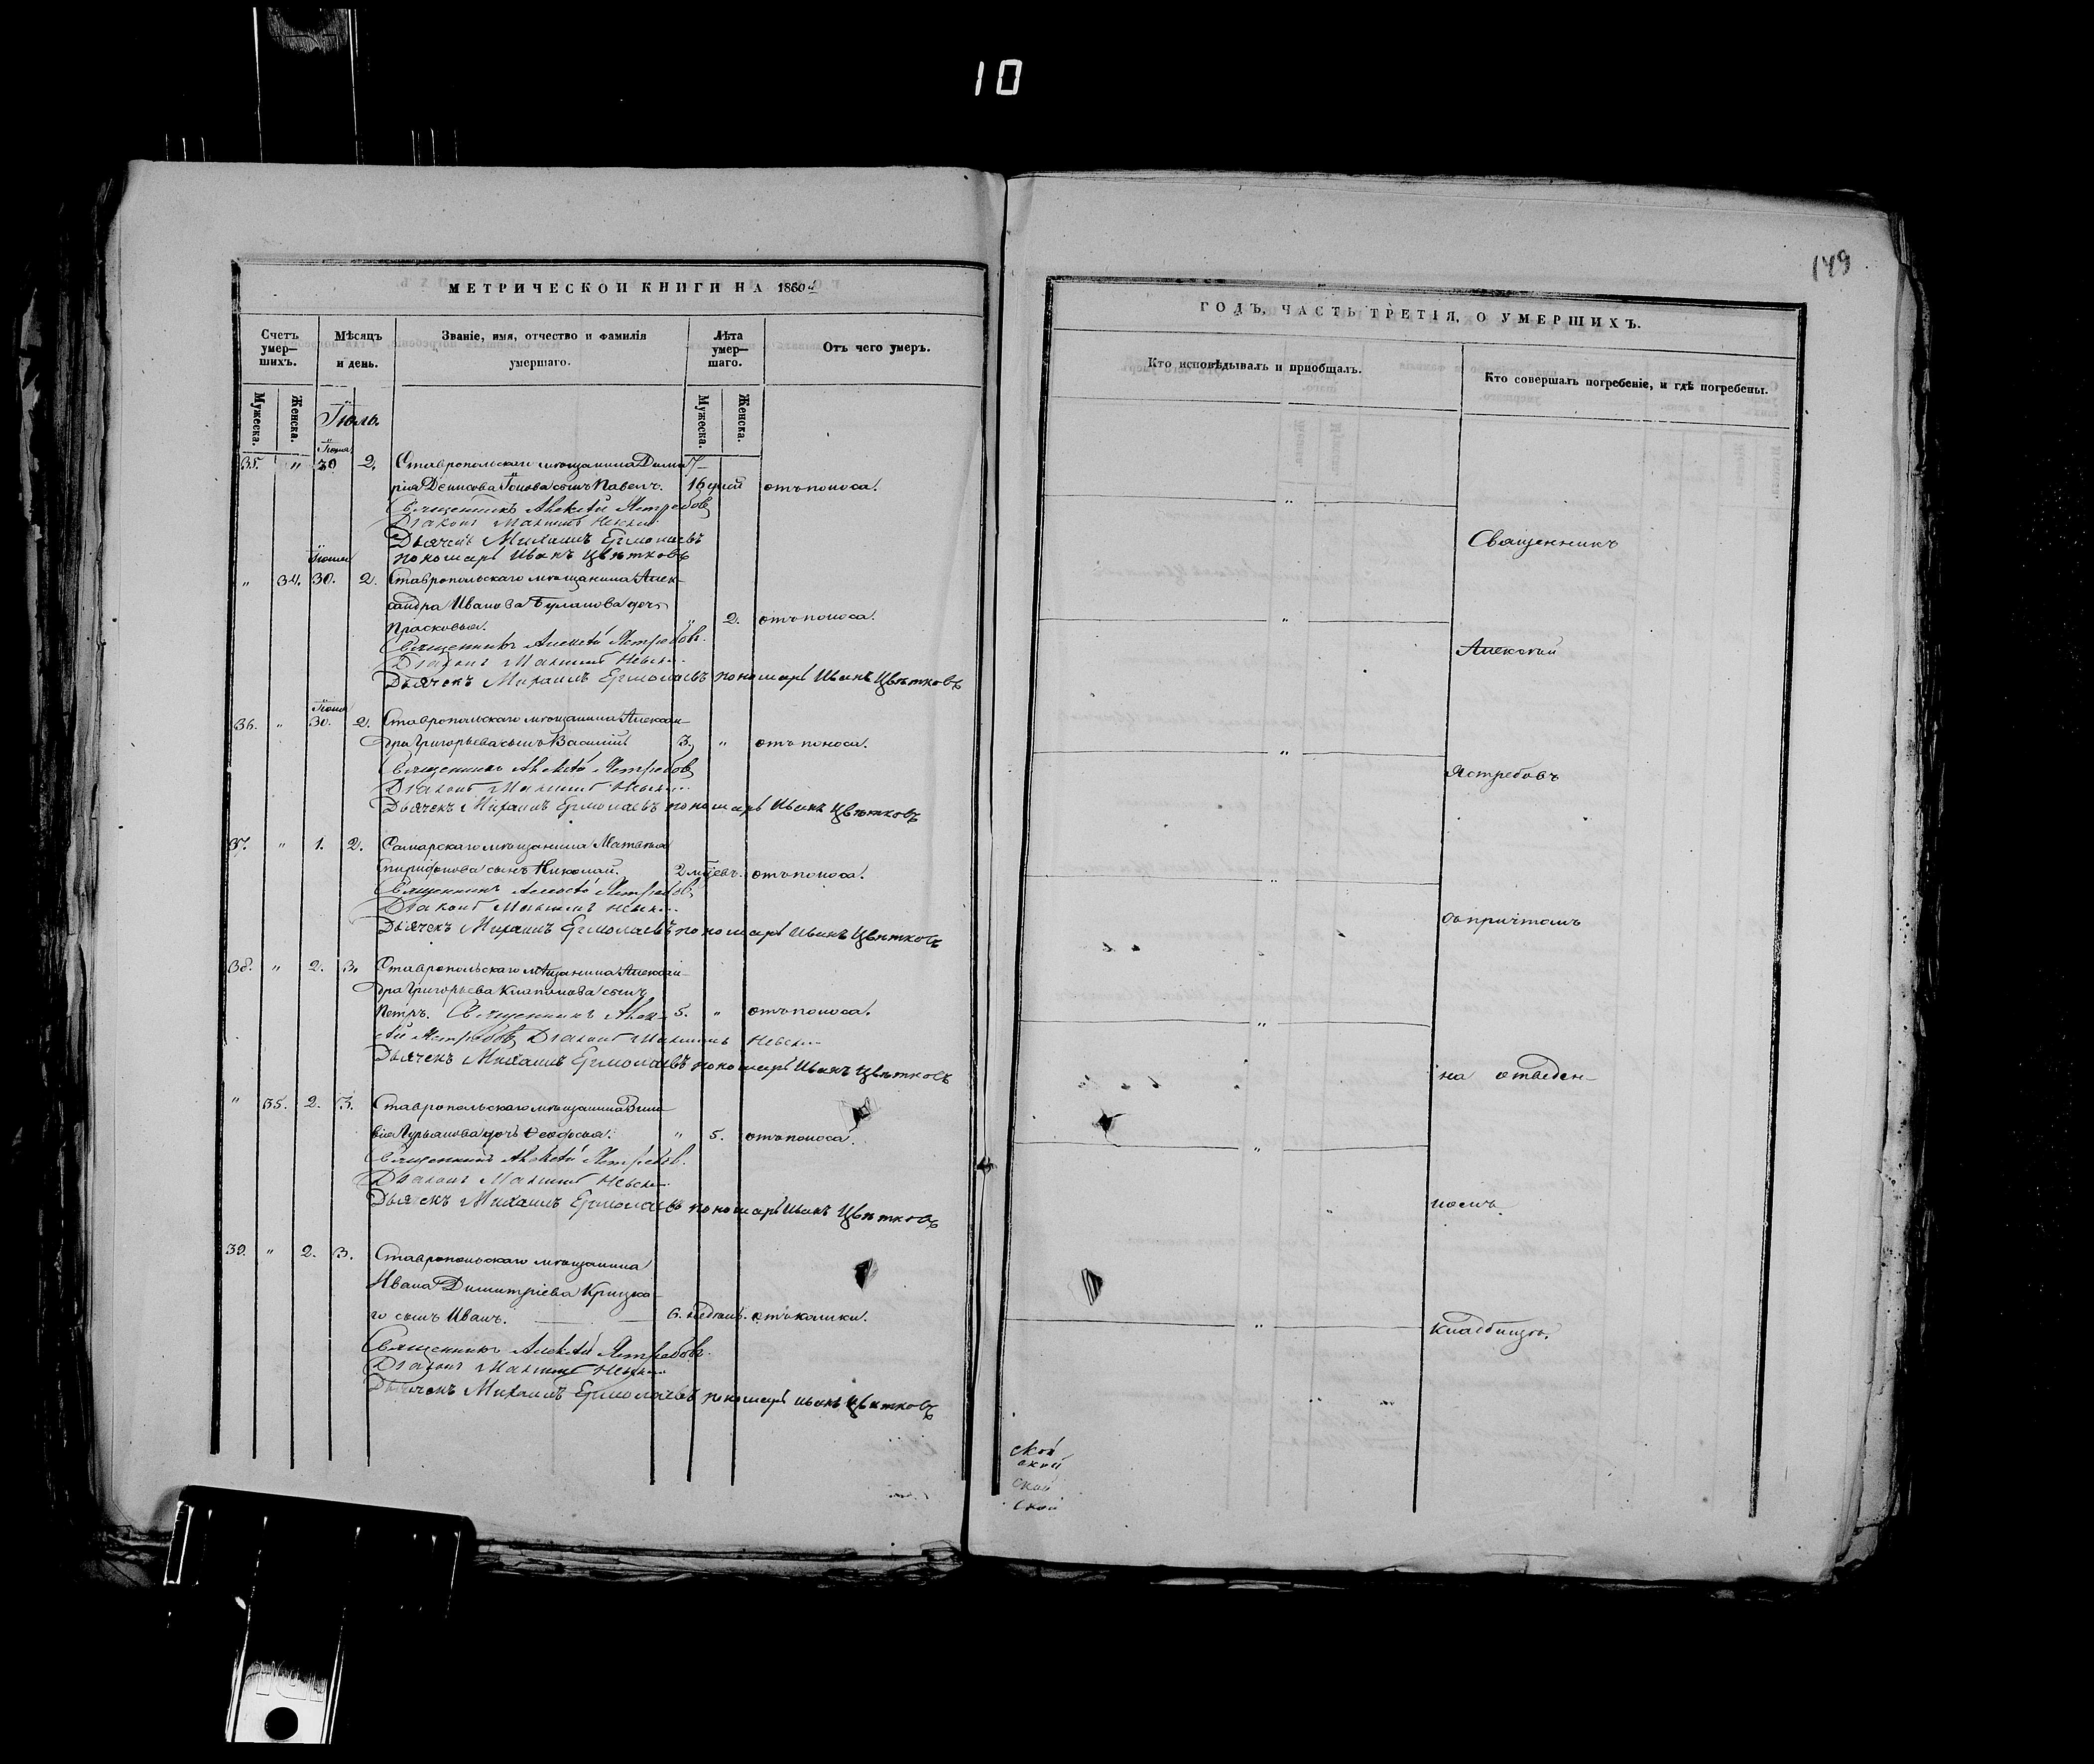 10
149
МЕТРИЧЕСКОЙ КНИГИ НА 1860
Счетъ умер—
шихъ.
Мѣсяцъ
и день.
Званіе, имя, отчество и фамилія
умершаго.
Лѣта
умер—
шаго.
Отъ чего умеръ.
Мужеска.
Женска.
Мужеска.
Женска.
Іюль.
Іюня
35. " 30 2. Ставропольскаго мѣщанина Дмит-
рія Денисова сынъ Павелъ. 16 дней отъ поноса.
Священникъ Алексѣй Ястребовъ
Діаконъ
Дьячекъ Михаилъ Ермолаевъ
пономарь Иванъ Цвѣтковъ
Іюня
" 34. 30. 2. Ставропольскаго мѣщанина Алек-
сандра Иванова Буланова дочь
Прасковья. " 2. отъ поноса.
Священникъ Алексѣй Ястребовъ.
Діаконъ
Дьячекъ Михаилъ Ермолаевъ пономарь Иванъ Цвѣтковъ
Іюня
36. " 30. 2. Ставропольскаго мѣщанина Алексан-
дра Григорьева сынъ Василій 3. " отъ поноса.
Священникъ Алексѣй Ястребовъ
Діаконъ
Дьячекъ Михаилъ Ермолаевъ пономарь Иванъ Цвѣтковъ
37. " 1. 2. Самарскаго мѣщанина Матвѣя
Спиридонова сынъ Николай. 2 мѣсц. отъ поноса.
Священникъ Алексѣй Ястребовъ
Діаконъ
Дьячекъ Михаилъ Ермолаевъ пономарь Иванъ Цвѣтковъ
38. " 2. 3. Ставропольскаго мѣщанина Алексан-
дра Григорьева сынъ
Петръ. Священникъ Алек- 5. " отъ поноса.
сѣй Ястребовъ Діаконъ
Дьячекъ Михаилъ Ермолаевъ пономарь Иванъ Цвѣтковъ
" 35. 2. 3. Ставропольскаго мѣщанина
Гурьянова дочь Ѳеодосья. " 5. отъ поноса.
Священникъ Алексѣй Ястребовъ.
Діаконъ
Дьячекъ Михаилъ Ермолаевъ пономарь Иванъ Цвѣтковъ
39. " 2. 3. Ставропольскаго мѣщанина
Ивана Димитріева
го сынъ Иванъ. 6. недѣль. отъ колики.
Священникъ Алексѣй Ястребовъ.
Діаконъ
Дьячекъ Михаилъ Ермолаевъ пономарь Иванъ Цвѣтковъ
ГОДЪ, ЧАСТЬ ТРЕТІЯ, О УМЕРШИХЪ.
Кто исповѣдывалъ и пріобщалъ.
Кто совершалъ погребеніе, и гдѣ погребены.
"
Священникъ
"
Алексѣй
"
Ястребовъ
"
съ причтомъ
"
на отведен-
"
номъ
"
кладбищѣ.
ской
ской
ской
ской